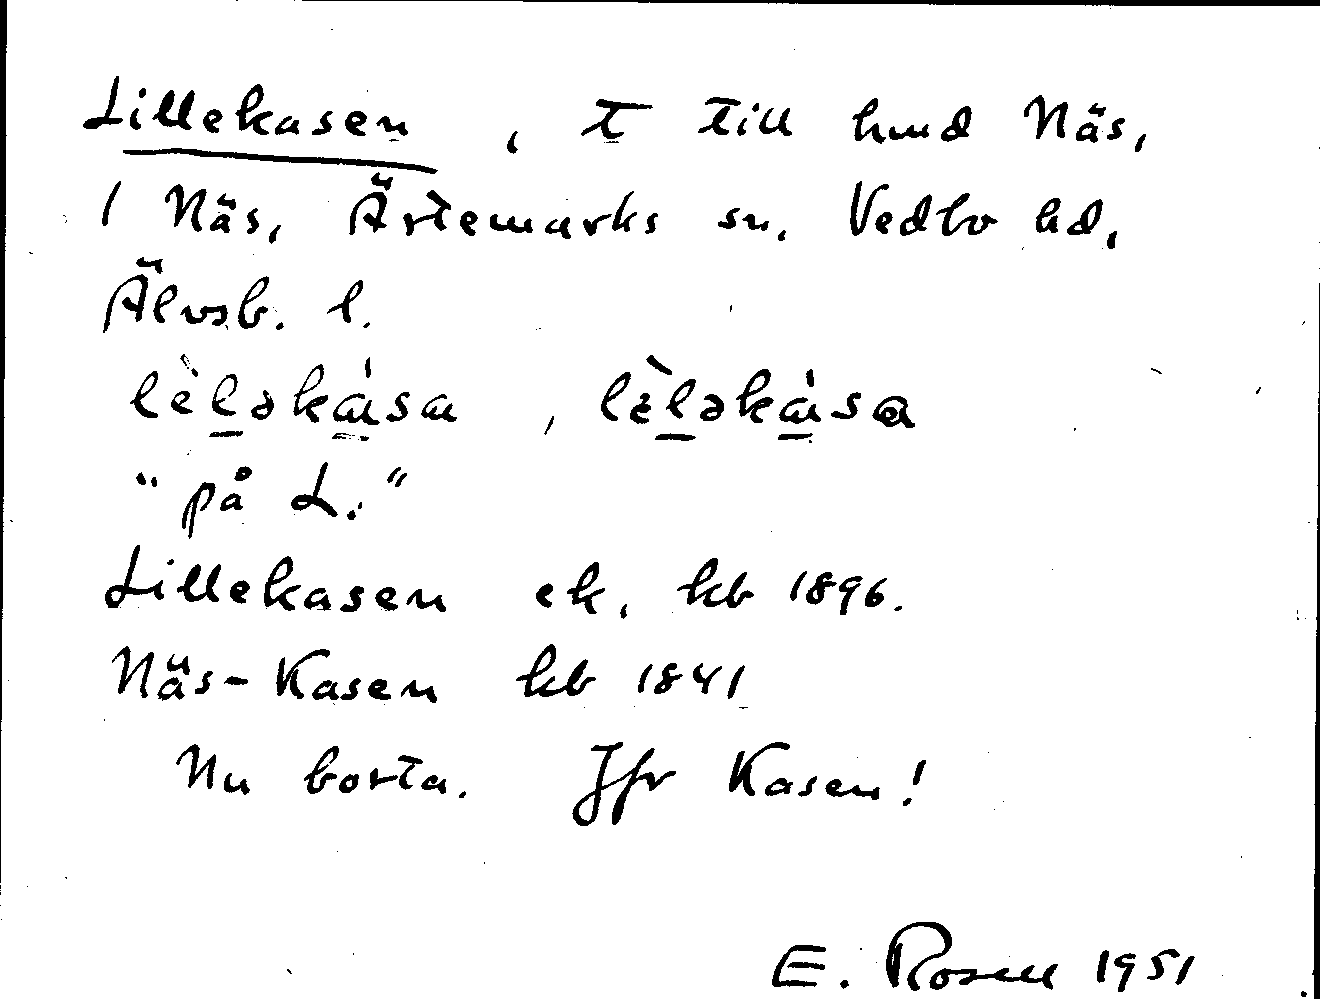 Lillekasen, t till hmd Näs,
1 Näs, Ärtemarks sn, Vedbo hd,
Älvsb. l.
lèləkàsa, lèləkàsa
"på L."
Lillekasen ek, kb 1896.
Näs-Kasen kb 1841
Nu borta. Jfr Kasen!
E. Rosell 1951